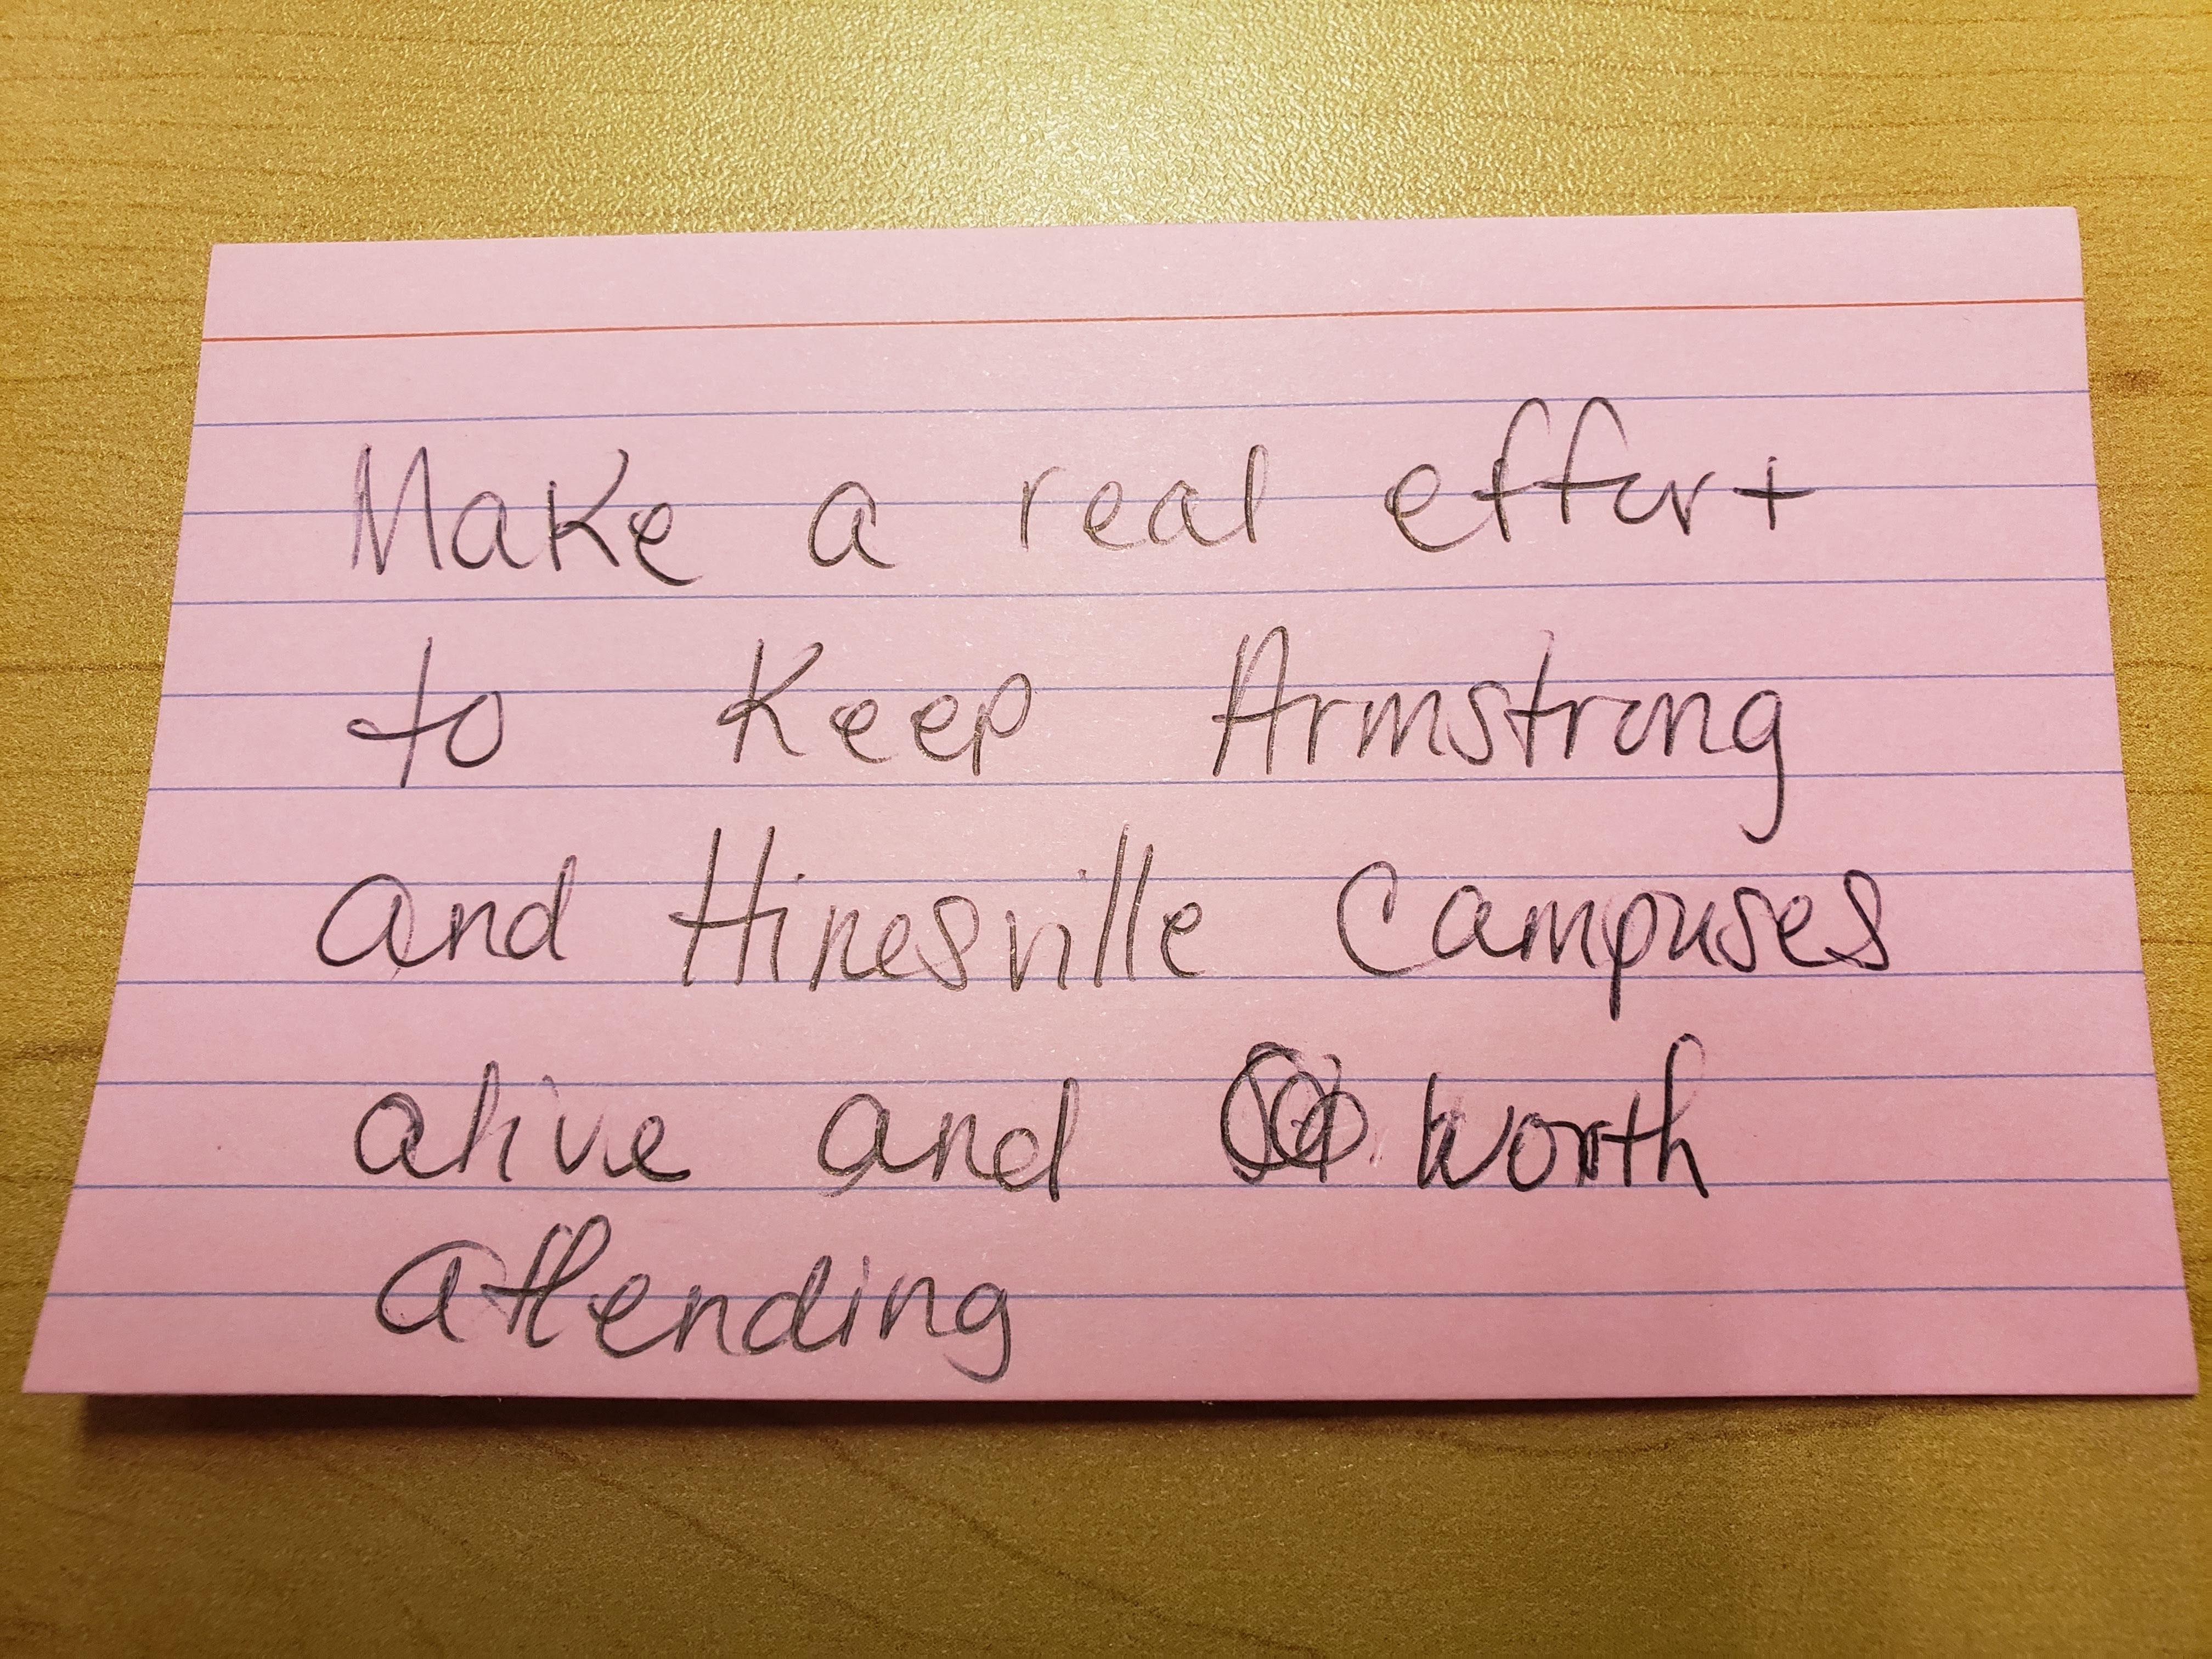 Make a real effort
to Keep Armstrong
and Hinesville Campuses
alive and worth
attending